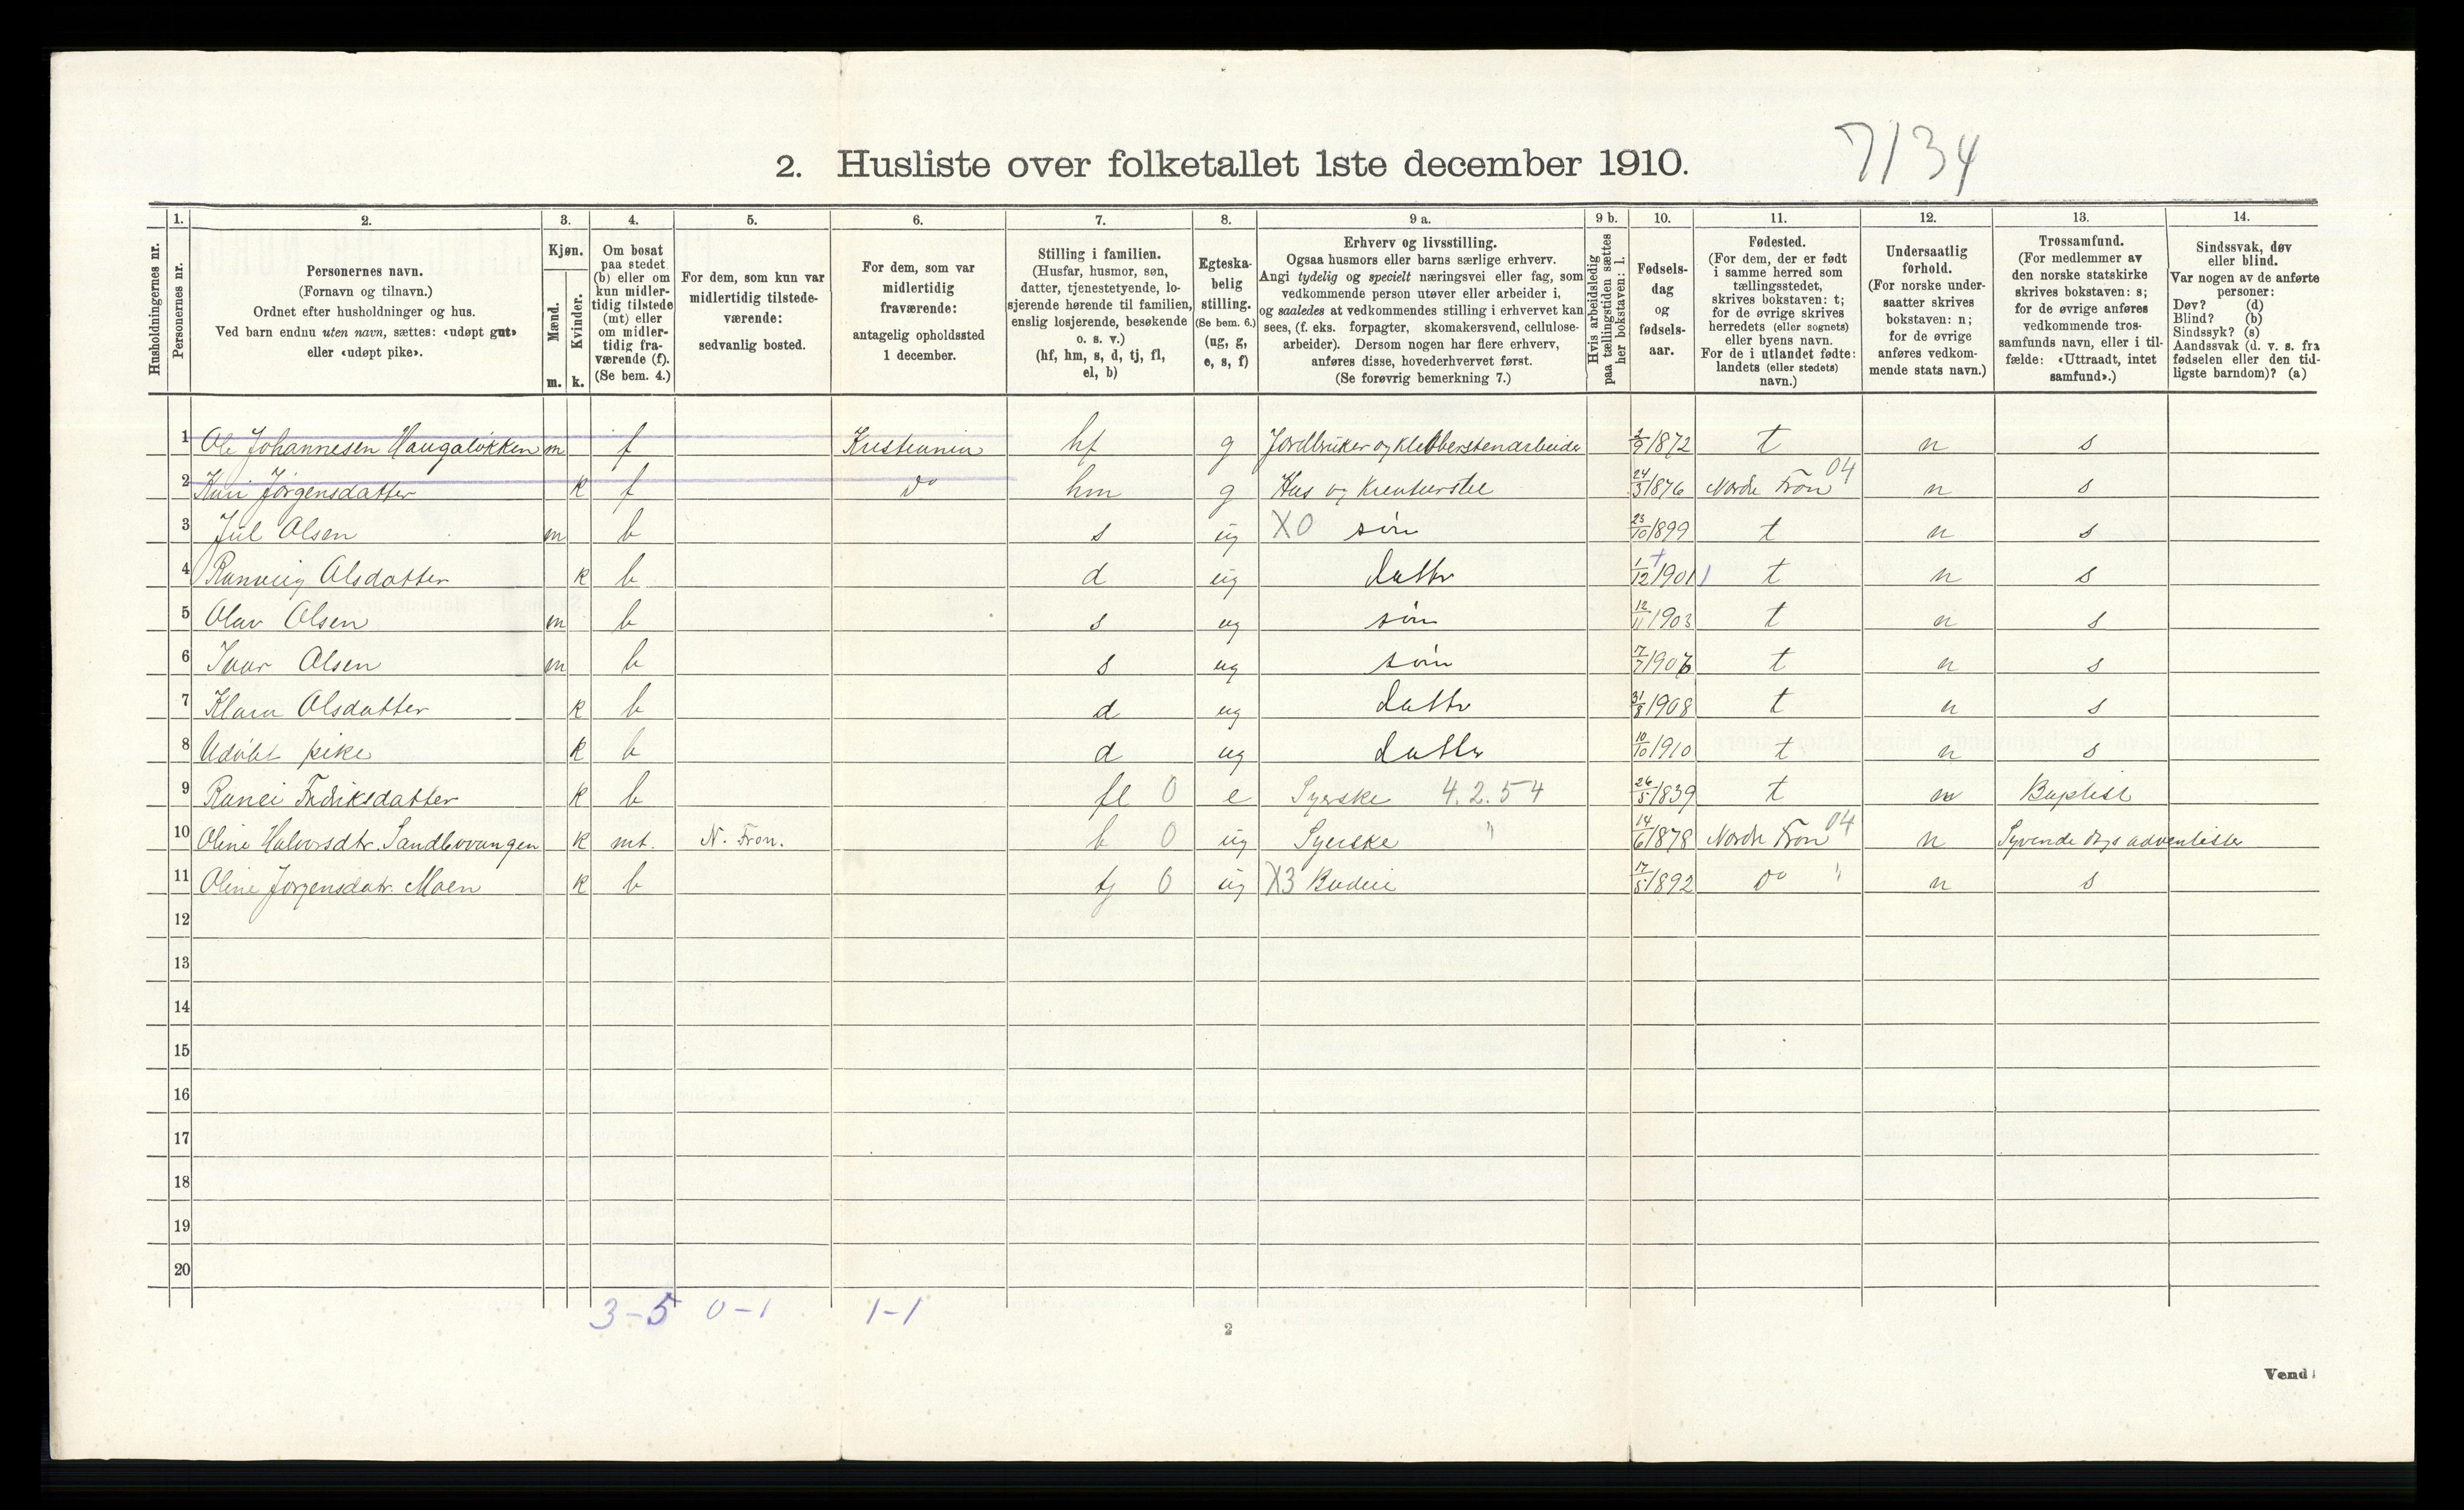 7134
2. Husliste over folketallet 1ste december 1910.
Husholdningernes nr.
1. Personernes nr.
2. Personernes navn.
(Fornavn og tilnavn.)
Ordnet efter husholdninger og hus.
Ved barn endnu uten navn, sættes: «udøpt gut»
eller «udøpt pike».
3. Kjøn.
Mænd. m.
Kvinder. k.
4. Om bosat
paa stedet
(b) eller om
kun midler-
tidig tilstede
(mt) eller
om midler-
tidig fra-
værende (f).
(Se bem. 4.)
5. For dem, som kun var
midlertidig tilstede-
værende:
sedvanlig bosted.
6. For dem, som var
midlertidig
fraværende:
antagelig opholdssted
1 december.
7. Stilling i familien.
(Husfar, husmor, søn,
datter, tjenestetyende, lo-
sjerende hørende til familien,
enslig losjerende, besøkende
o. s. v.)
(hf, hm, s, d, tj, fl,
el, b)
8. Egteska-
belig
stilling.
(Se bem. 6.)
(ug, g,
e, s, f)
9 a. Erhverv og livsstilling.
Ogsaa husmors eller barns særlige erhverv.
Angi tydelig og specielt næringsvei eller fag, som
vedkommende person utøver eller arbeider i,
og saaledes at vedkommendes stilling i erhvervet kan
sees, (f. eks. forpagter, skomakersvend, cellulose-
arbeider). Dersom nogen har flere erhverv,
anføres disse, hovederhvervet først.
(Se forøvrig bemerkning 7.)
9 b. Hvis arbeidsledig
paa tællingstiden sættes
her bokstaven: l.
10. Fødsels-
dag
og
fødsels-
aar.
11. Fødested.
(For dem, der er født
i samme herred som
tællingsstedet,
skrives bokstaven: t;
for de øvrige skrives
herredets (eller sognets)
eller byens navn.
For de i utlandet fødte:
landets (eller stedets)
navn.)
12. Undersaatlig
forhold.
(For norske under-
saatter skrives
bokstaven: n;
for de øvrige
anføres vedkom-
mende stats navn.)
13. Trossamfund.
(For medlemmer av
den norske statskirke
skrives bokstaven: s;
for de øvrige anføres
vedkommende tros-
samfunds navn, eller i til-
fælde: «Uttraadt, intet
samfund».)
14. Sindssvak, døv
eller blind.
Var nogen av de anførte
personer:
Døv? (d)
Blind? (b)
Sindssyk? (s)
Aandssvak (d. v. s. fra
fødselen eller den tid-
ligste barndom)? (a)
1 Ole Johannesen Haugaløkken m f Kristiania hf g Jordbruker og klebberstenarbeider 2/9 1872 t n s
2 Kari Jørgensdatter k f do hm g Hus og Kreaturstel 24/3 1876 Nordre Fron 04 n s
3 Jul Olsen m b s ug X0 søn 23/10 1899 t n s
4 Ranveig Olsdatter k b d ug datter 1/12 1901 t n s
5 Olav Olsen m b s ug søn 12/11 1903 t n s
6 Ivar Olsen m b s ug søn 7/7 1906 t n s
7 Klara Olsdatter k b d ug datter 31/8 1908 t n s
8 Udøbt pike k b d ug datter 10/10 1910 t n s
9 Ranei Fredriksdatter k b fl 0 e Syerske 4.2.54 26/5 1839 t n Baptist
10 Oline Halvorsdtr. Sandbovangen k mt. N. Fron. b 0 ug Syerske " 14/6 1878 Nordre Fron 04 n Syvende dags adventister
11 Oline Jørgensdatr. Moen k b tj 0 ug X3 Budeie 17/5 1892 do " n s
12
13
14
15
16
17
18
19
20
3-5 0-1 1-1
2
Vend!